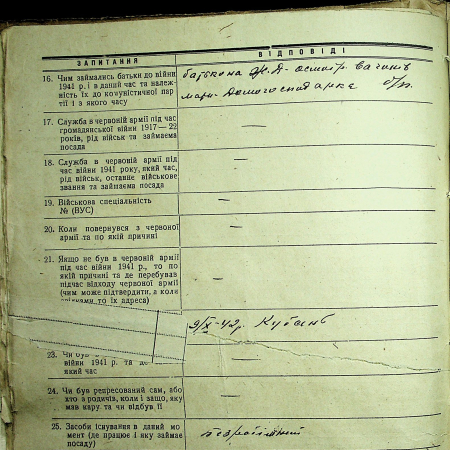 ЗАПИТАННЯ
ВІДПОВІДІ
16. Чим займались батьки до війни
1941 р. і в даний час та належ-
ність їх до комуністичної пар-
тії і з якого часу
батько на Ж.Д- осмотр. вагонів
мати- Домогосподарка б/п.
17. Служба в червоній армії під час
громадянської війни 1917—22
років, рід військ та займаєма
посада
—
18. Служба в червоній армії під
час війни 1941 року, який час,
рід військ, останнє військове
звання та займаєма посада
—
19. Військова спеціальність
№ (ВУС)
—
20. Коли повернувся з червоної
армії та по якій причині
—
21. Якщо не був в червоній армії
під час війни 1941 р., то по
якій причині та де перебував
підчас відходу червоної армії
(чим може підтвердити, а коли
то їх адреса)
—
9/X-42р. Кубань
23. Чи був
війни 1941 р. та
який час
24. Чи був репресований сам, або
хто з родичів, коли і защо, яку
мав кару та чи відбув її
—
25. Засоби існування в даний мо-
мент (де працює і яку займає
посаду)